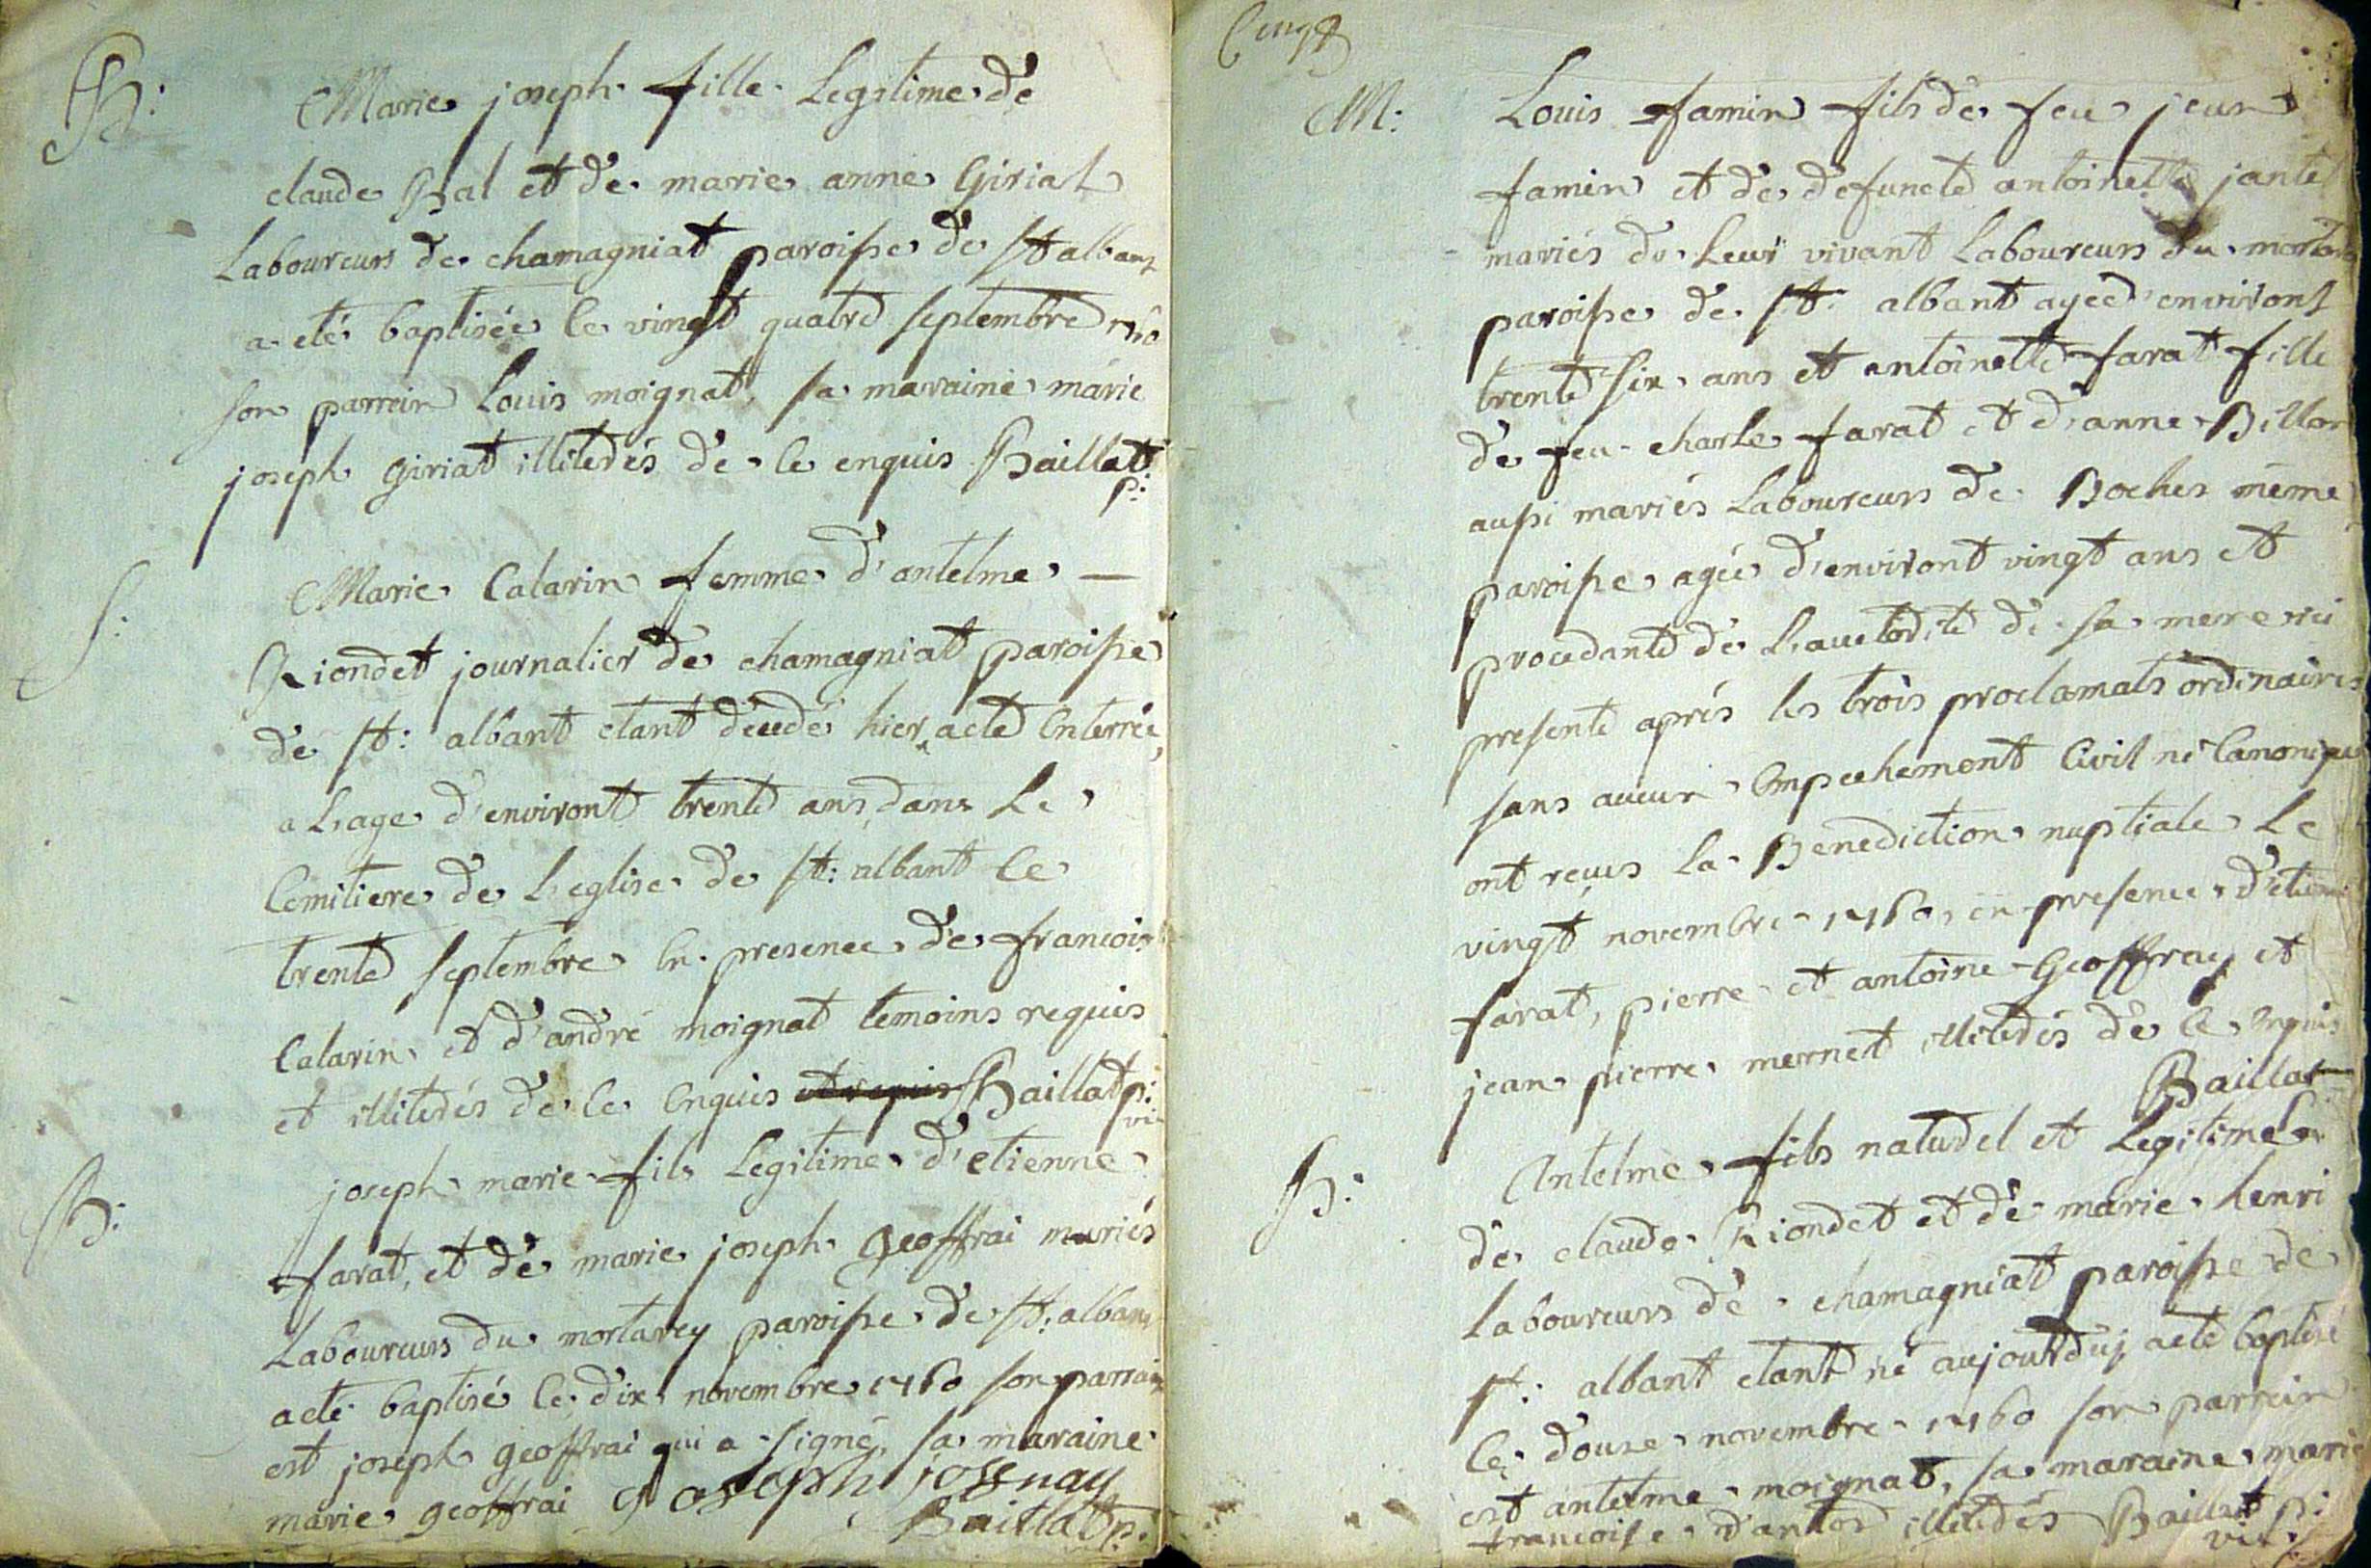 B:
Marie joseph fille Legitime de
claude Bal et de marie anne Giriat
Laboureurs de chamagniat paroisse de St albant
a eté baptisée le vingt quatre septembre
son parrein Louis moignat, sa maraine marie
joseph giriat illiterés de ce enquis Baillat
p:
S:
Marie Calarin femme d'antelme —
Riondet journalier de chamagniat paroisse
de St: albant etant decedé hier, a eté Enterrée,
a L'age d'environt trente ans, dans Le
Cemitiere de L'eglise de St: albant Le
trente septembre En presence de francois
Calarin et d'andré moignat temoins requis
et illiterés de ce Enquis et requis Baillat p:
vi:
B:
joseph marie fils Legitime d'etienne
farat, et de marie joseph geoffrai mariés
Laboureurs du mortarey paroisse de St: albant
a eté baptisé le dix novembre 1760 son parrain
est joseph geoffrai qui a signé, sa maraine
marie geoffrai Joseph joffray
Baillat p:
Cinq
M:
Louis famin fils de feu jean
famin et de defuncte antoinette jantet
mariés de Leur vivant Laboureurs du
paroisse de St: albant ageé d'environt
trente six ans et antoinette farat fille
de feu charle farat et d'anne Billon
aussi mariés Laboureurs de Boches méme
paroisse ageé d'environt vingt ans et
procedante de L'auctorité de sa mere ici
presente aprés les trois proclamats ordinaires
sans aucun Empechement Civil ni Canonique
ont reçus la Benediction nuptiale Le
vingt novembre 1760, en presence d'etienne
farat, pierre et antoine Geoffray et
jean pierre mernet illiterés de ce Enquis
Baillat
B:
Antelme fils naturel et Legitime
de claude Riondet et de marie henri
Laboureurs de chamagniat paroisse de
St: albant etant né aujourduj a eté baptisé
le douze novembre 1760 son parrein
est antelme moignat, sa maraine marie
francoise d'antor illiterés Baillat p:
vic: